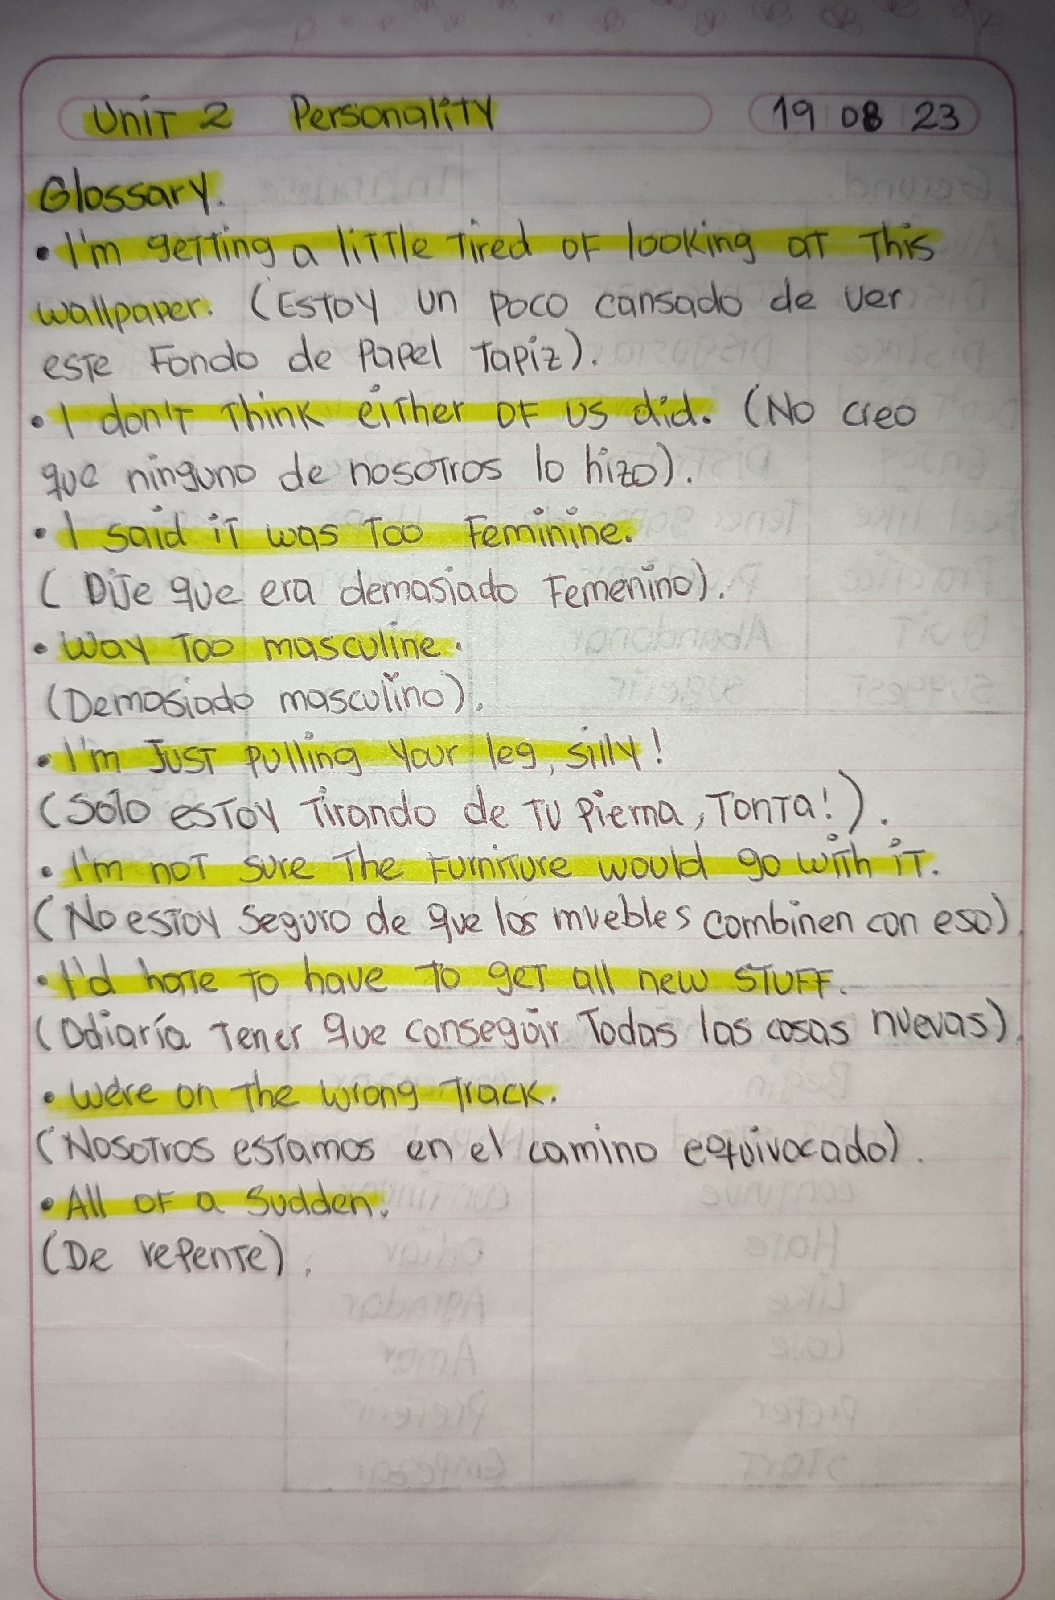 Unit 2 Personality 19 08 23
Glossary.
• I'm getting a little tired of looking at this
wallpaper. (Estoy un poco cansado de ver
este Fondo de Papel Tapiz).
• I don't think either of us did. (No creo
que ninguno de nosotros lo hizo).
• I said it was too Feminine.
( Dije que era demasiado Femenino).
• Way too masculine.
(Demasiado masculino).
• I'm Just pulling your leg, silly!
(Solo estoy Tirando de Tu Pierna, Tonta!).
• I'm not sure the Furniture would go with it.
(No estoy seguro de que los muebles combinen con eso).
• I'd hate to have to get all new stuff.
(Odiaría tener que conseguir Todas las cosas nuevas).
• We're on the wrong track.
(Nosotros estamos en el camino equivocado).
• All of a Sudden.
(De repente).